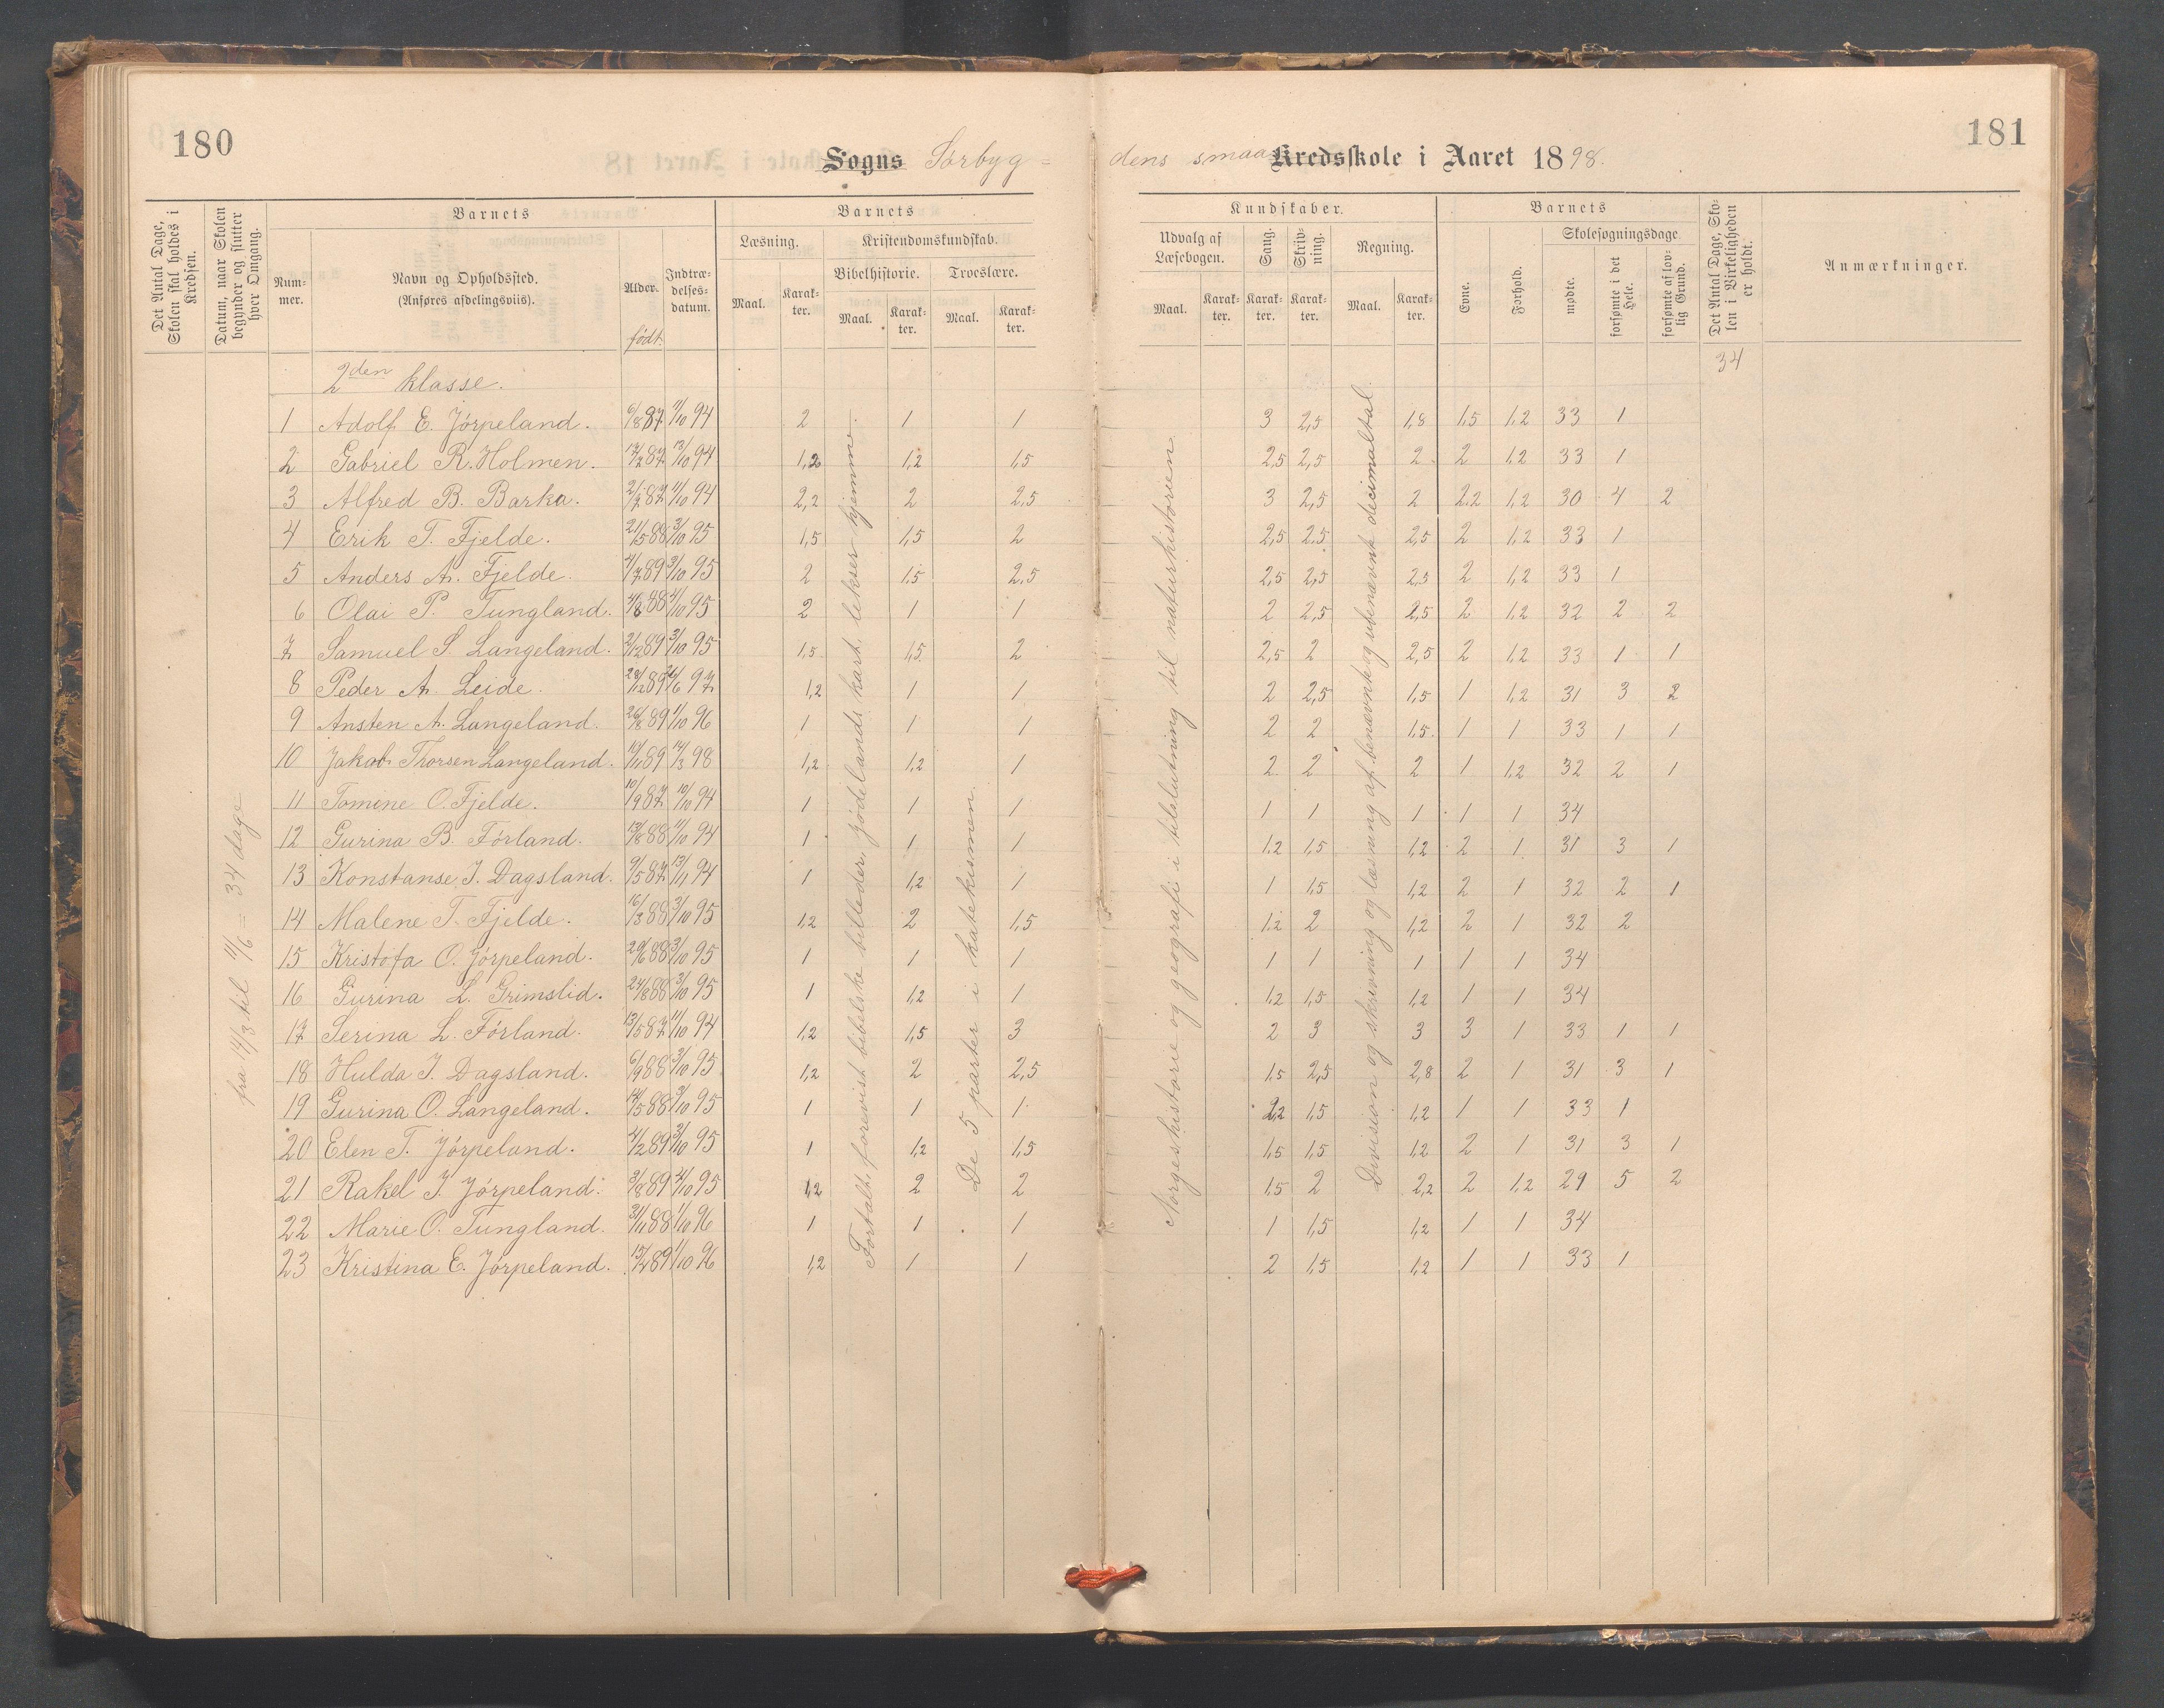 180
181
Sogns Sørbyg=
dens smaa Kredsskole i Aaret 1898.
Det Antal Dage, Skolen skal holdes i Kredsen.
Datum, naar Skolen begynder og slutter hver Omgang.
Barnets
Nummer.
Navn og Opholdssted.
(Anføres afdelingsviis).
Alder.
født.
Indtrædelsesdatum.
Barnets
Læsning.
Maal.
Karakter.
Kristendomskundskab.
Bibelhistorie.
Maal.
Karakter.
Troeslære.
Maal.
Karakter.
Kundskaber.
Udvalg af Læsebogen.
Maal.
Karakter.
Sang.
Karakter.
Skrivning.
Karakter.
Regning.
Maal.
Karakter.
Barnets
Evne.
Forhold.
Skolesøgningsdage
mødte.
forsømte i det Hele.
forsømte af lovlig Grund.
Det Antal Dage, Skolen i Virkeligheden er holdt.
Anmærkninger.
34
2den klasse.
fra 14/3 til 11/6 = 34 dage
1 Adolf E. Jørpeland. 6/8 87 11/10 94 2 1 1 3 2,5 1,8 1,5 1,2 33 1
2 Gabriel R. Holmen. 17/2 87 13/10 94 1,2 1,2 1,5 2,5 2,5 2 2 1,2 33 1
3 Alfred B. Barka. 2/7 87 11/10 94 2,2 2 2,5 3 2,5 2 2,2 1,2 30 4 2
4 Erik T. Fjelde. 21/5 88 3/10 95 1,5 1,5 2 2,5 2,5 2,5 2 1,2 33 1
5 Anders A. Fjelde. 4/7 89 3/10 95 2 1,5 2,5 2,5 2,5 2,5 2 1,2 33 1
6 Olai P. Tungland. 4/8 88 4/10 95 2 1 1 2 2,5 2,5 2 1,2 32 2 2
7 Samuel S. Langeland. 2/12 89 3/10 95 1,5 1,5 2 2,5 2 2,5 2 1,2 33 1 1
8 Peder A. Leide. 28/12 89 24/6 97 1,2 1 1 2 2,5 1,5 1 1,2 31 3 2
9 Ansten A. Langeland. 26/8 89 1/10 96 1 1 1 2 2 1,5 1 1 33 1 1
10 Jakob Thorsen Langeland. 11/11 89 14/3 98 1,2 1,2 1 2 2 2 1 1,2 32 2 1
11 Tomine O. Fjelde. 10/9 87 10/10 94 1 1 1 1 1 1 1 1 34
12 Gurina B. Førland. 13/8 88 11/10 94 1 1 1 1,2 1,5 1,2 2 1 31 3 1
13 Konstanse J. Dagsland. 9/5 87 13/11 94 1 1,2 1 1 1,5 1,2 2 1 32 2 1
14 Malene T. Fjelde. 16/3 88 3/10 95 1,2 2 1,5 1,2 2 1,2 2 1 32 2
15 Kristofa O. Jørpeland. 29/6 88 3/10 95 1 1 1 1 1 1 1 1 34
16 Gurina L. Grimslid. 24/8 88 3/10 95 1 1,2 1 1,2 1,5 1,2 1 1 34
17 Serina L. Førland. 13/5 87 11/10 94 1,2 1,5 3 2 3 3 3 1 33 1 1
18 Hulda J. Dagsland. 6/9 88 3/10 95 1,2 2 2,5 1,5 2,5 2,8 2 1 31 3 1
19 Gurina O. Langeland. 14/5 88 3/10 95 1 1 1 2,2 1,5 1,2 1 1 33 1
20 Elen T. Jørpeland. 4/2 89 3/10 95 1 1,2 1,5 1,5 1,5 1,2 2 1 31 3 1
21 Rakel J. Jørpeland. 3/8 89 4/10 95 1,2 2 2 1,5 2 2,2 2 1,2 29 5 2
22 Marie O. Tungland. 3/11 88 1/10 96 1 1 1 1 1,5 1,2 1 1 34
23 Kristina E. Jørpeland. 13/2 89 1/10 96 1,2 1 1 2 1,5 1,2 1 1 33 1
Fortalt, forevist bibelske billeder, jødelands kart, lekser hjemme.
De 5 parter i katekismen.
Norgeshistorie og geografi i tilslutning til naturhistorien
Division og skrivning og læsning af benævnte og ubenævnt decimaltal.